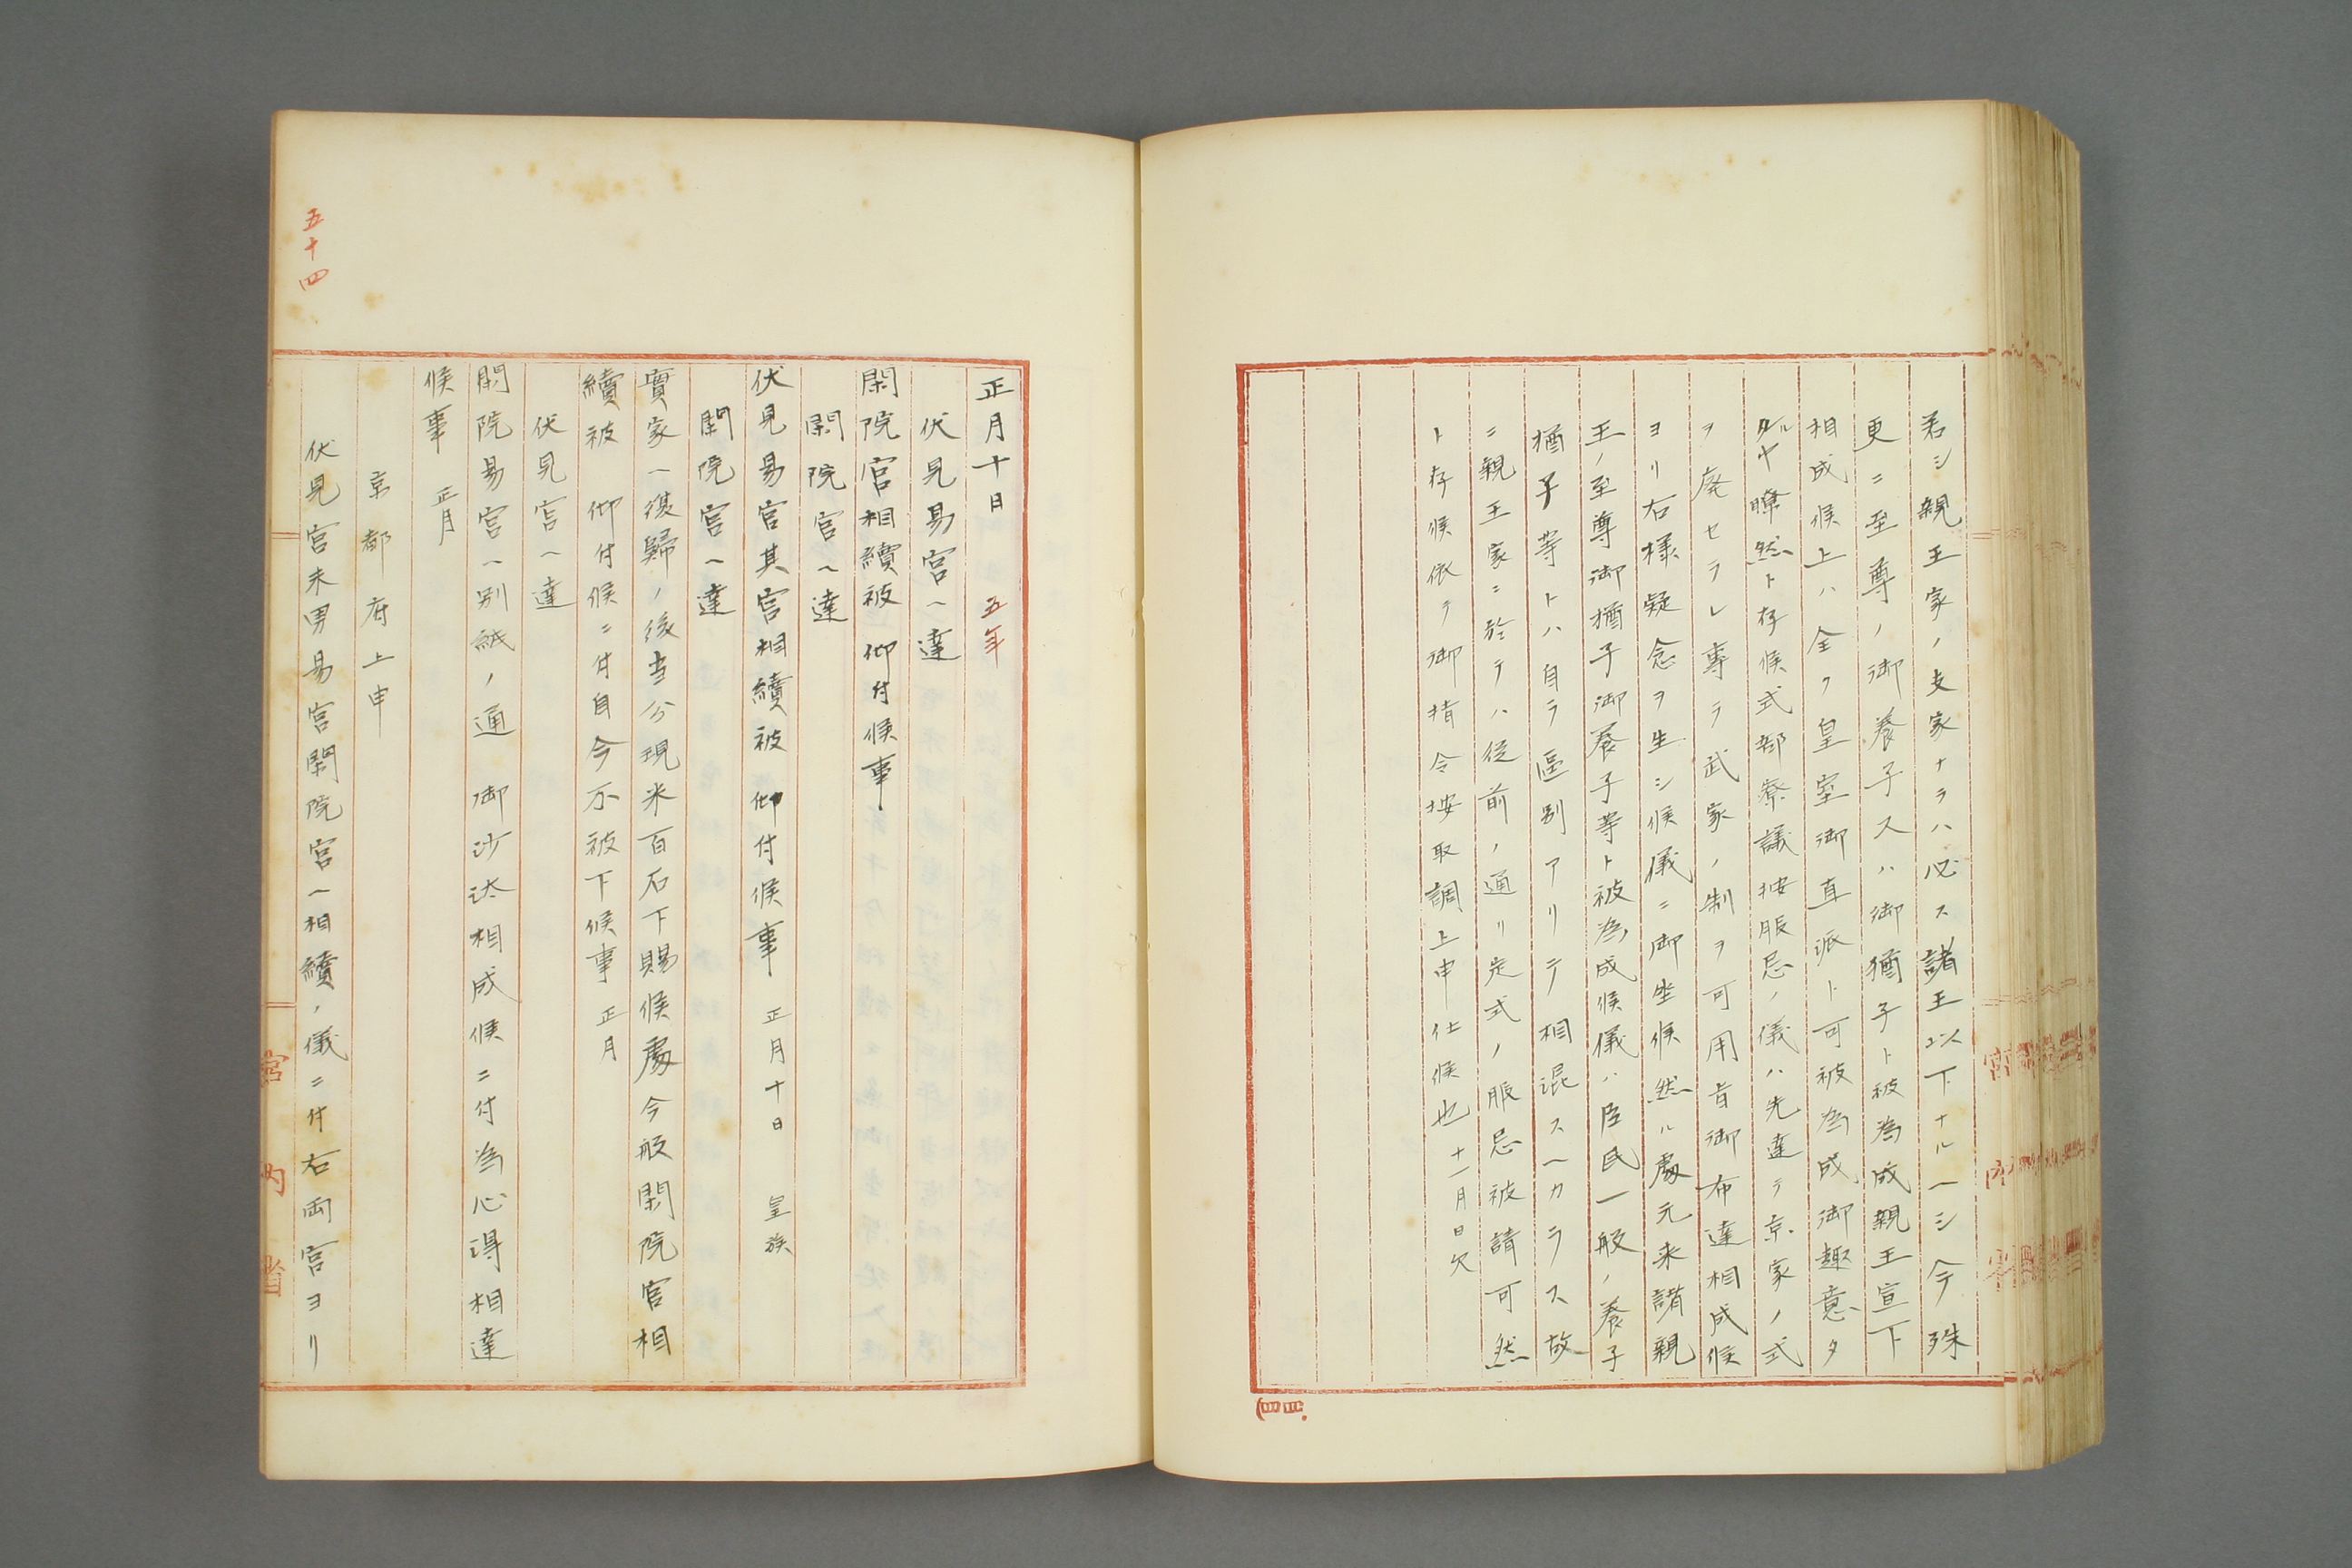 若シ親王家ノ支家ナラハ必ス諸王以下ナルヘシ今殊
更ニ至尊ノ御養子又ハ御猶子ト被為成親王宣下
相成候上ハ全ク皇室御直派ト可被為成御趣意タ
ルヤ瞭然ト存候式部寮議按服忌ノ儀ハ先達テ京家ノ式
ヲ廃セラレ専ラ武家ノ制ヲ可用旨御布達相成候
ヨリ右様疑念ヲ生シ候儀ニ御坐候然ル處元来諸親
王ノ至尊御猶子御養子等ト被為成候儀ハ臣民一般ノ養子
猶子等トハ自ラ區別アリテ相混スヘカラス故
ニ親王家ニ於テハ従前ノ通リ定式ノ服忌被請可然
ト存候依テ御指令按取調上申仕候也 十一月日欠
四四
正月十日 五年
伏見易宮ヘ達
閑院宮相續被 仰付候事
閑院宮ヘ達
伏見易宮其宮相續被 仰付候事 正月十日 皇族
閑院宮ヘ達
實家ヘ復歸ノ後当分現米百石下賜候處今般閑院宮相
續被 仰付候ニ付自今不被下候事 正月
伏見宮ヘ達
閑院易宮ヘ別紙ノ通 御沙汰相成候ニ付為心得相達
候事 正月
京都府上申
伏見宮末男易宮閑院宮ヘ相續ノ儀ニ付右両宮ヨリ
五十四
宮内省